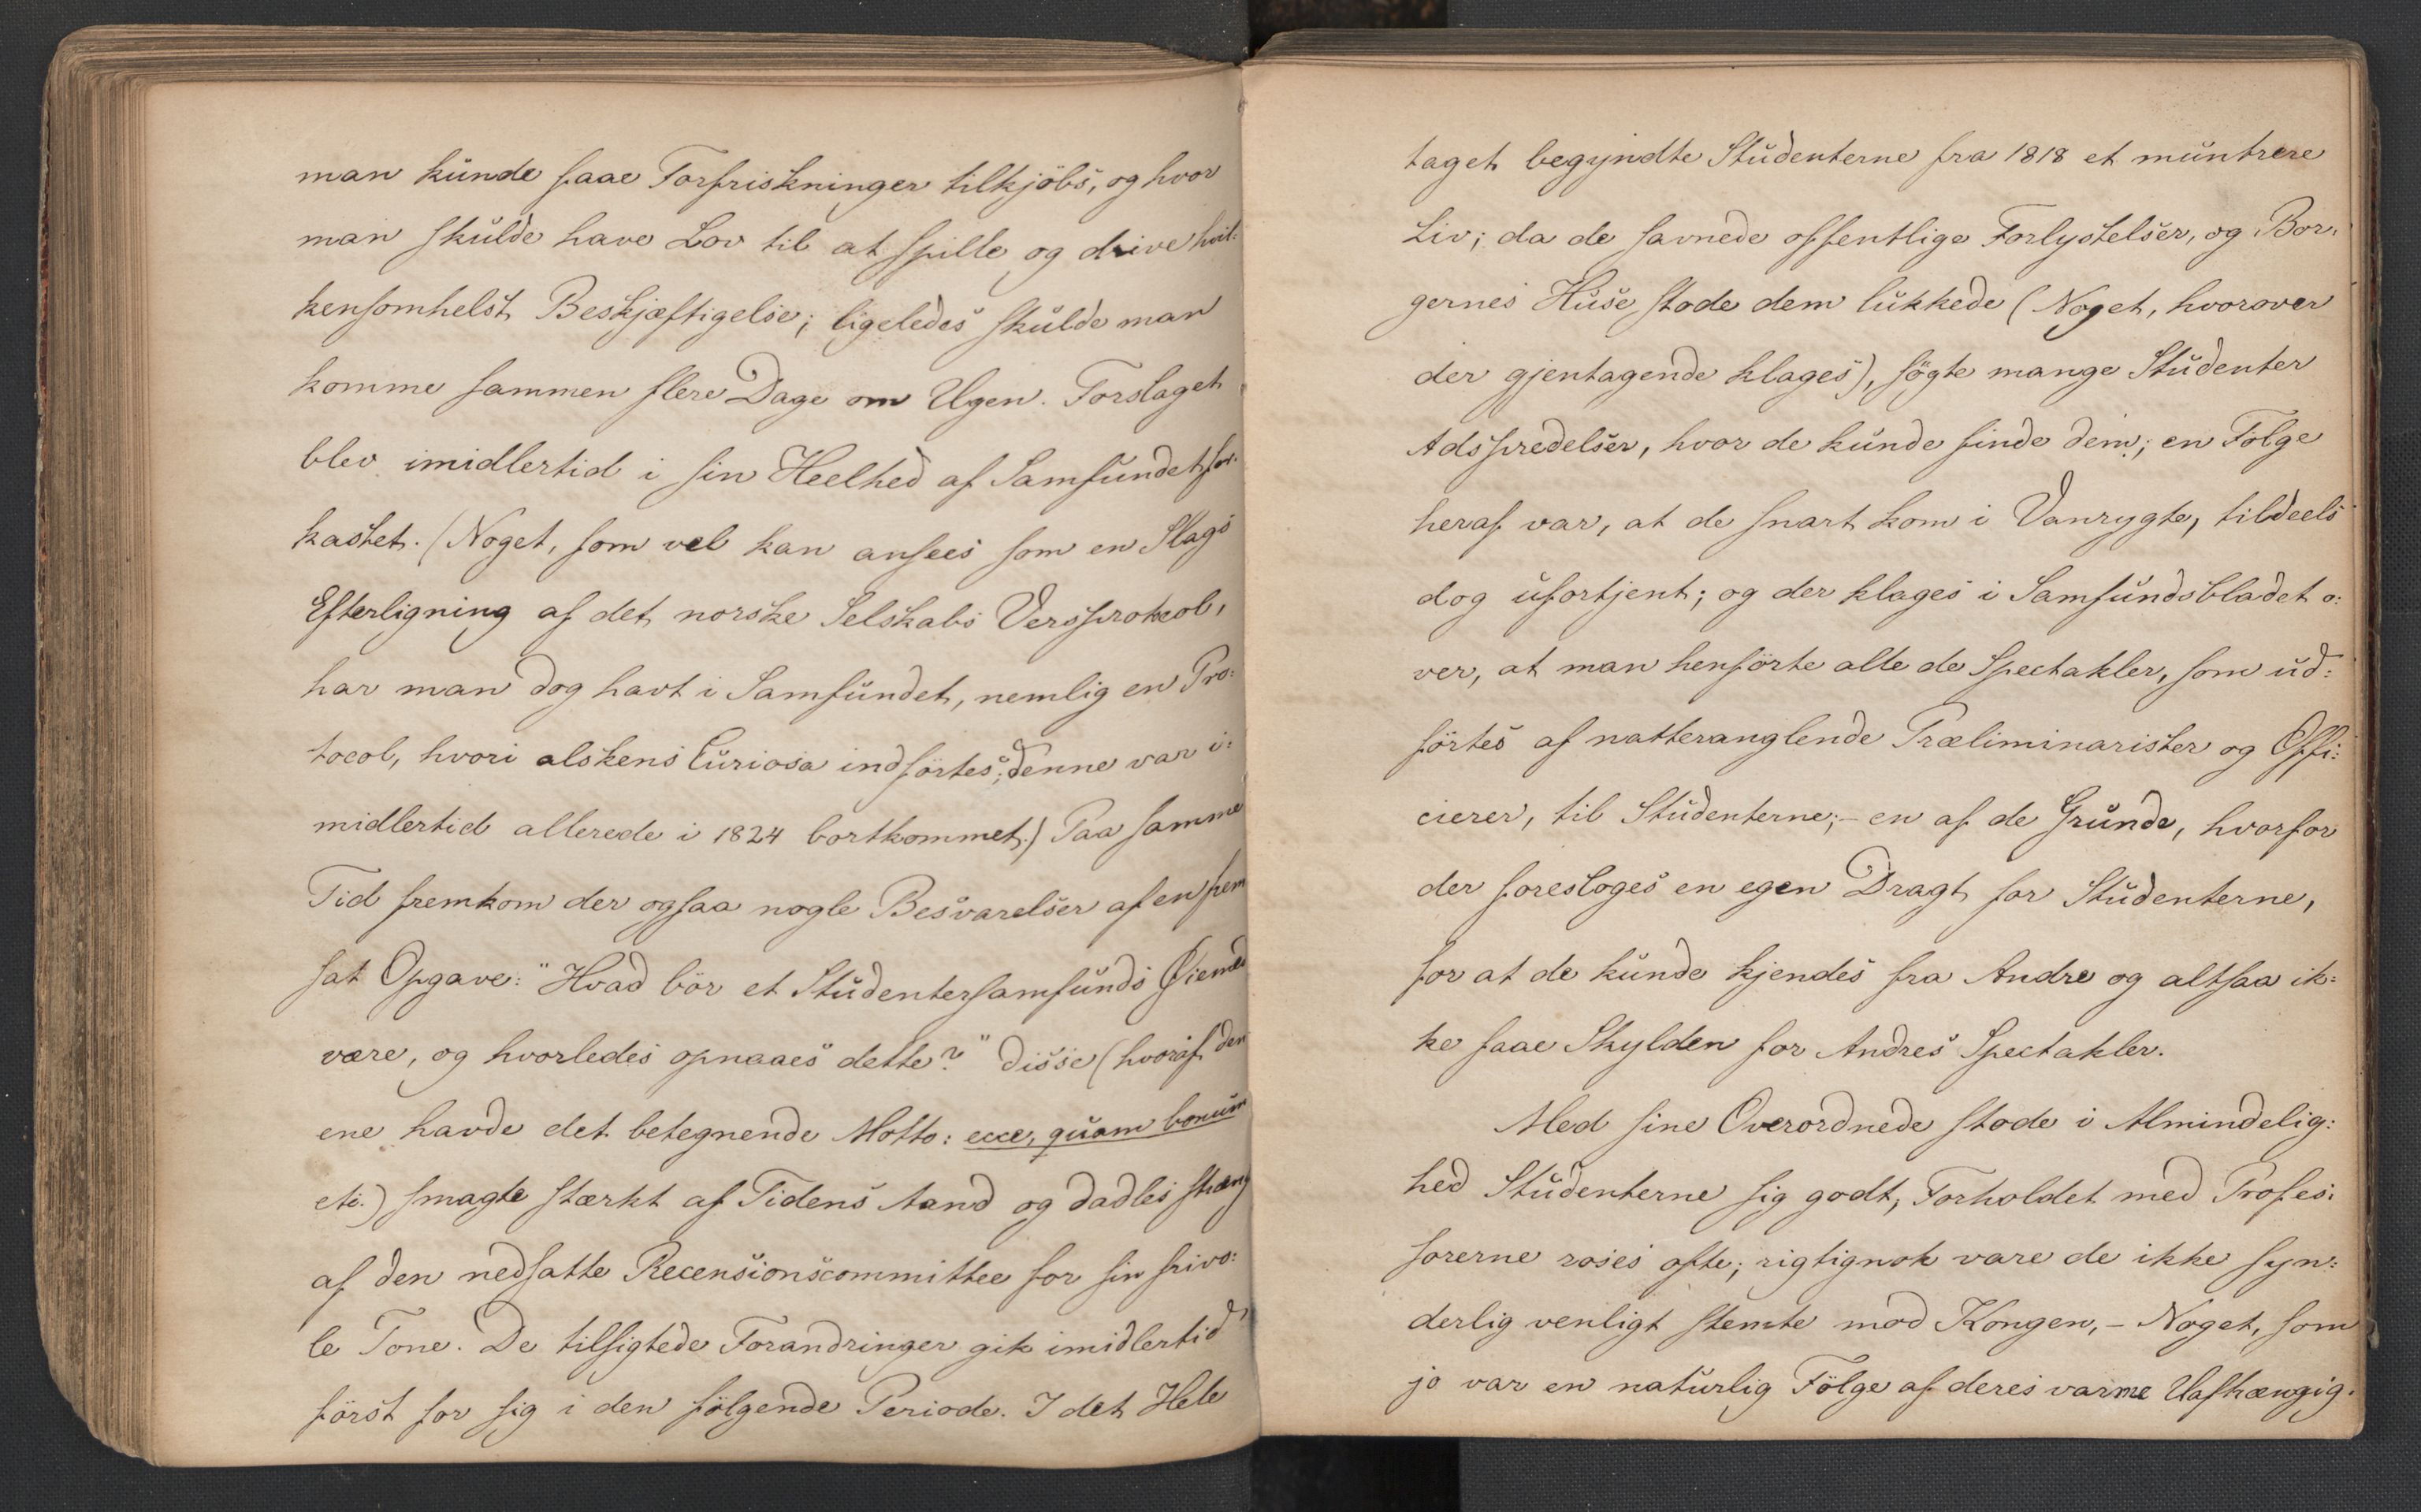 man kunde faae Forfriskninger tilkjöbs, og hvor
man skulde have Lov til at spille og drive hvil-
kensomhelst Beskjæftigelse; ligeledes skulde man
komme sammen flere Dage om Ugen. Forslaget
blev imidlertid i sin Heelhed af Samfundet for-
kastet. (Noget, som vel kan ansees som en Slags
Efterligning af det norske Selskabs Versprotocol,
har man dog havt i Samfundet, nemlig en Pro-
tocol, hvori alskens Curiosa indförtes; denne var i-
midlertid allerede i 1824 bortkommet.) Paa samme
Tid fremkom der ogsaa nogle Besvarelser af en frem
sat Opgave: "Hvad bör et Studentersamfunds Øiemed
være, og hvorledes opnaaes dette?" Disse (hvoraf den
ene havde det betegnende Motto: ecce, quam bonum
etc.) smagte stærkt af Tidens Aand og dadles streng
af den nedsatte Recensionscommittee for sin frivo-
le Tone. De tilsigtede Forandringer gik imidlertid
först for sig i den fölgende Periode. I det Hele
taget begyndte Studenterne fra 1818 et muntrere
Liv; da de savnede offentlige Forlystelser, og Bor-
gernes Huse stode dem lukkede (Noget, hvorover
der gjentagende klages), sögte mange Studenter
Adspredelser, hvor de kunde finde dem; en Fölge
heraf var, at de snart kom i Vanrygte, tildeels
dog ufortjent; og der klages i Samfundsbladet o-
ver, at man henförte alle de Spectakler, som ud-
förtes af natteranglende Præliminarister og Offi-
cierer, til Studenterne;- en af de Grunde, hvorfor
der foresloges en egen Dragt for Studenterne,
for at de kunde kjendes fra Andre og altsaa ik-
ke faae Skylden for Andres Spectakler.
Med sine Overordnede stode i Almindelig-
hed Studenterne sig godt; Forholdet med Profes-
sorerne roses ofte; rigtignok vare de ikke syn-
derlig venligt stemte mod Kongen,- Noget, som
jo var en naturlig Fölge af deres varme Uafhængig-